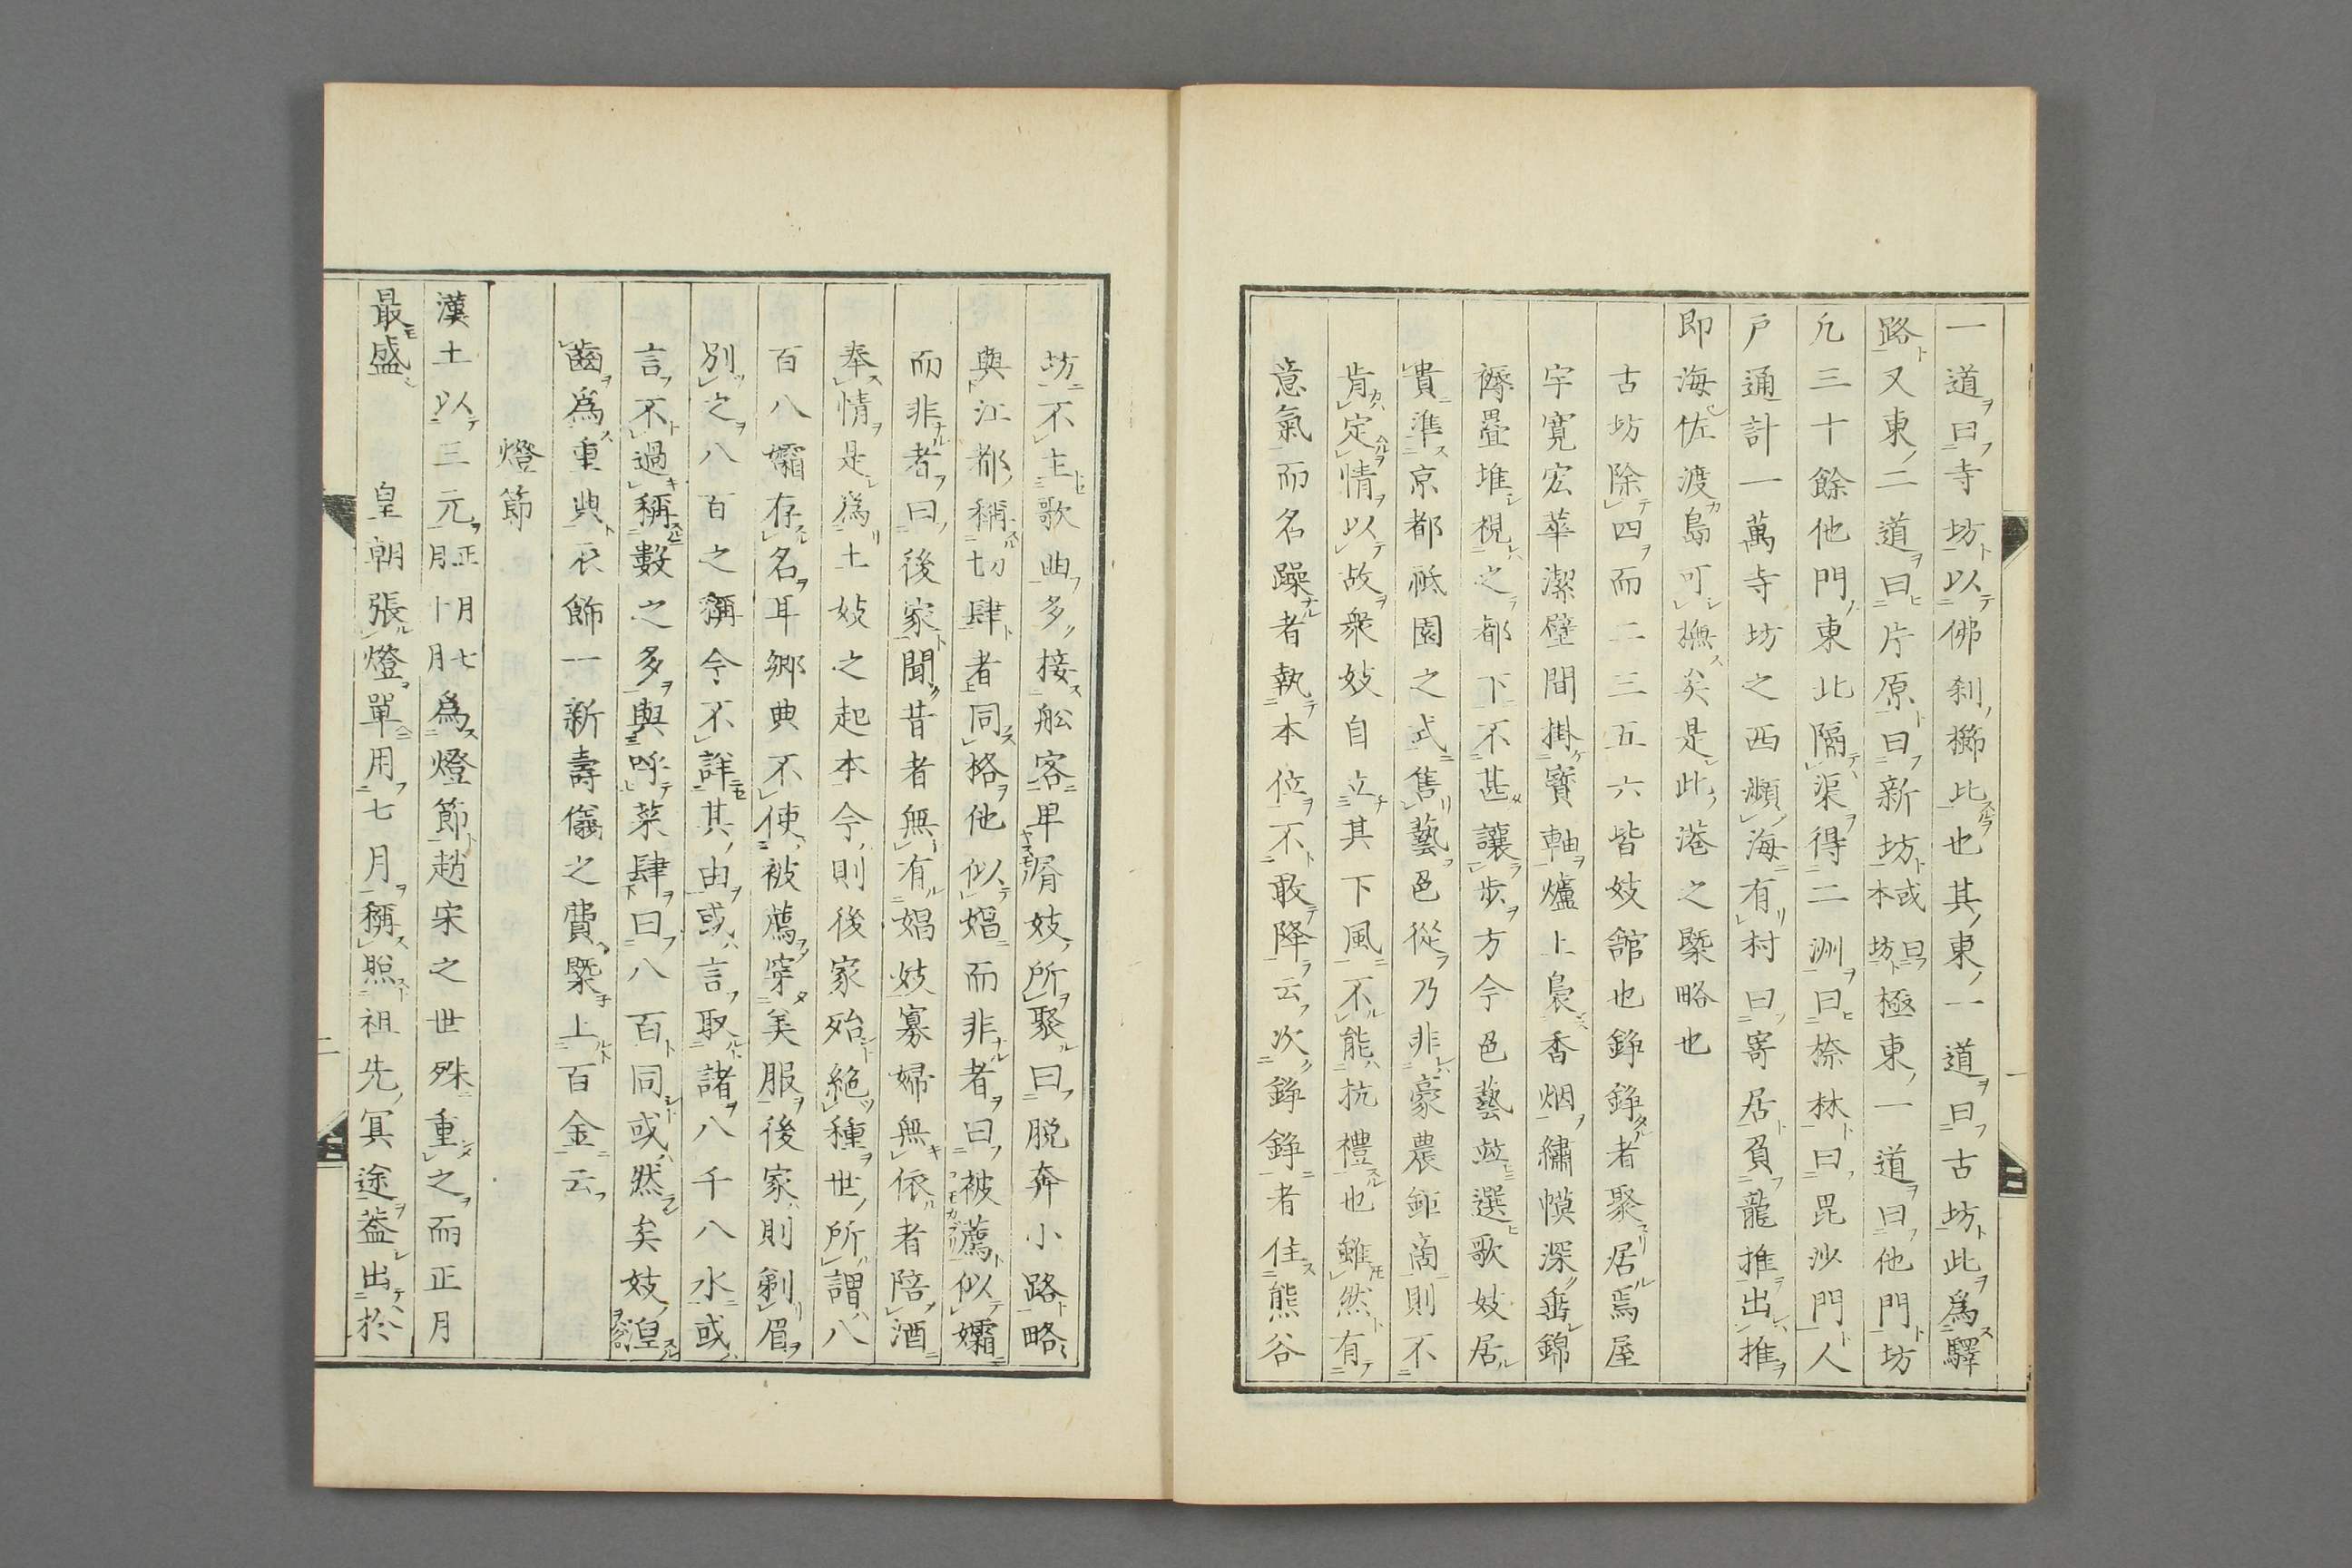 一道曰寺坊以佛刹櫛比也其東一道曰古坊此爲驛
路又東二道曰片原曰新坊或曰本坊極東一道曰他門坊
凢三十餘他門東北隔渠得二洲曰榛林曰毘沙門人
戸通計一萬寺坊之西瀕海有村曰寄居負龍推出推
即海佐渡島可撫矣是此港之槩略也
古坊除四而二三五六皆妓館也錚錚者聚居焉屋
宇寛宏華潔壁間掛寶軸爐上裊香烟繡幙深垂錦
褥疊堆視之都下不甚讓歩方今色藝並選歌妓居
貴準京都祗園之式售藝色從乃非豪農鉅商則不
肯定情以故衆妓自立其下風不能抗禮也雖然有
意氣而名躁者執本位不敢降云次錚錚者住熊谷
坊不主歌曲多接舩客卑屑妓所聚曰脱奔小路略
與江都稱切肆者同格他似娼而非者曰被薦似孀
而非者曰後家聞昔者無有娼妓寡婦無依者陪酒
奉情是爲土妓之起本今則後家殆絶種世所謂八
百八孀存名耳郷典不使被薦穿美服後家則剃眉
別之八百之稱今不詳其由或言取諸八千八水或
言不過稱數之多與呼菜肆曰八百同或然矣妓湟
齒爲重典衣飾一新壽儀之費槩上百金云
燈節
漢土以三元正月十月七月爲燈節趙宋之世殊重之而正月
最盛　皇朝張燈單用七月稱照祖先冥途葢出於